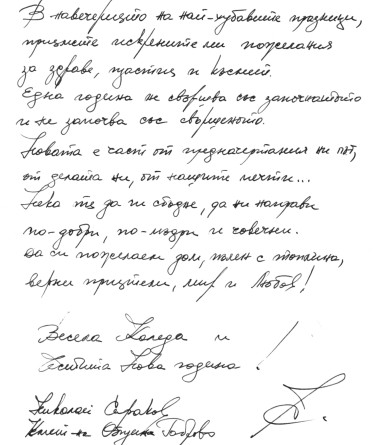 В навечерието на най-хубавите празници,
приемете искрените ми пожелания
за здраве, щастие и късмет.
Една година не свършва със започнатото
и не започва със свършеното.
Новата е част от предначертания ни път,
от делата ни, от нашите мечти...
Нека тя да ги сбъдне, да ни направи
по-добри, по-мъдри и човечни.
Да си пожелаем дом, пълен с топлина,
верни приятели, мир и Любов!
Весела Коледа и
Честита Нова година!
Николай Сираков
Кмет на Община Габрово